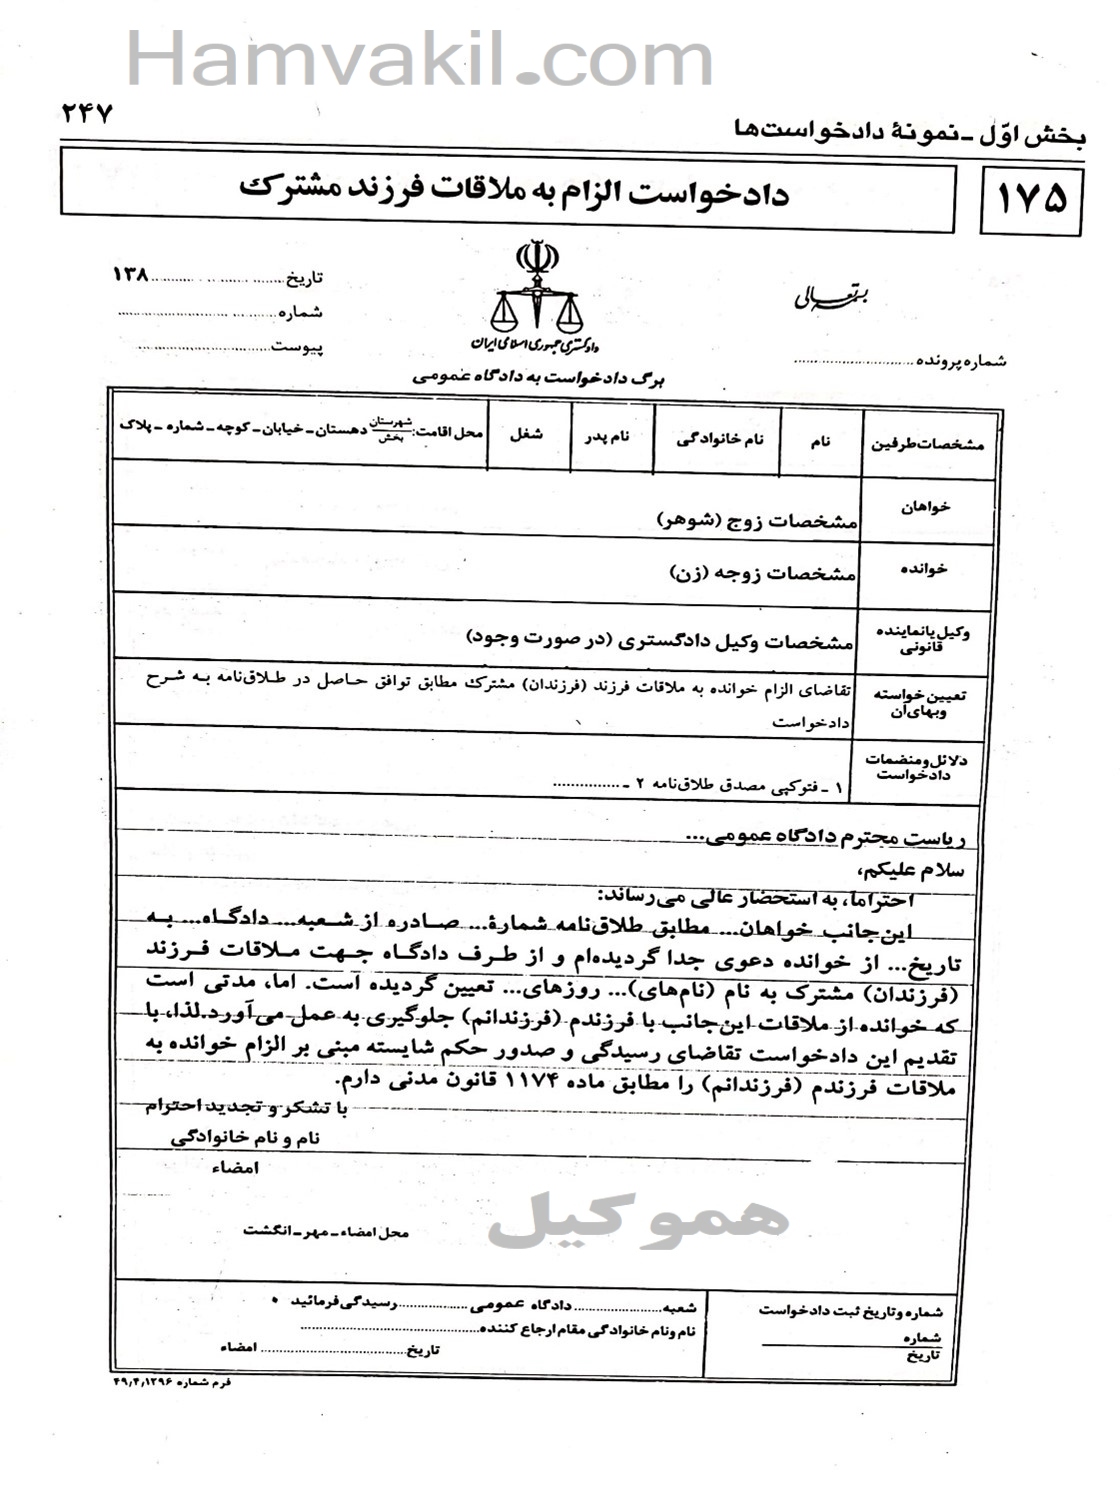 Hamvakil.com
۲۴۷
بخش اوّل ـ نمونهٔ دادخواست‌ها
۱۷۵
دادخواست الزام به ملاقات فرزند مشترک
بسمه تعالی
تاریخ.................... ۱۳۸
شماره....................
پیوست....................
دادگستری جمهوری اسلامی ایران
شماره پرونده....................
برگ دادخواست به دادگاه عمومی
مشخصات طرفین
نام
نام خانوادگی
نام پدر
شغل
محل اقامت: شهرستان بخش دهستان ـ خیابان ـ کوچه ـ شماره ـ پلاک
خواهان
مشخصات زوج (شوهر)
خوانده
مشخصات زوجه (زن)
وکیل یا نماینده
قانونی
مشخصات وکیل دادگستری (در صورت وجود)
تعیین خواسته
وبهای آن
تقاضای الزام خوانده به ملاقات فرزند (فرزندان) مشترک مطابق توافق حاصل در طلاق‌نامه به شرح
دادخواست
دلائل ومنضمات
دادخواست
۱ ـ فتوکپی مصدق طلاق‌نامه ۲ ـ................
ریاست محترم دادگاه عمومی...
سلام علیکم،
احتراماً، به استحضار عالی می‌رساند:
این‌جانب خواهان... مطابق طلاق‌نامه شمارهٔ... صادره از شعبه... دادگاه... به
تاریخ... از خوانده دعوی جدا گردیده‌ام و از طرف دادگاه جهت ملاقات فرزند
(فرزندان) مشترک به نام (نام‌های)... روزهای... تعیین گردیده است. اما، مدتی است
که خوانده از ملاقات این‌جانب با فرزندم (فرزندانم) جلوگیری به عمل می‌آورد. لذا، با
تقدیم این دادخواست تقاضای رسیدگی و صدور حکم شایسته مبنی بر الزام خوانده به
ملاقات فرزندم (فرزندانم) را مطابق ماده ۱۱۷۴ قانون مدنی دارم.
با تشکر و تجدید احترام
نام و نام خانوادگی
امضاء
هموکیل
محل امضاء ـ مهر ـ انگشت
شماره وتاریخ ثبت دادخواست
شماره
تاریخ
شعبه....................دادگاه عمومی ................رسیدگی فرمائید
نام ونام خانوادگی مقام ارجاع کننده....................
تاریخ.................... امضاء
فرم شماره ۴۹٫۴٫۱۲۹۶